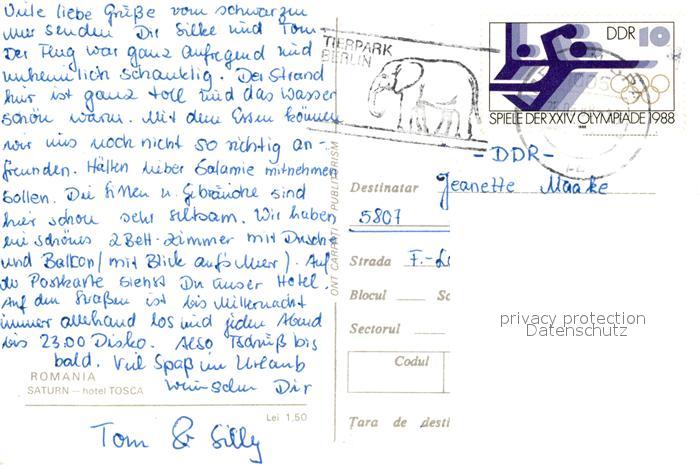 Viele liebe Grüße vom schwarzen
Meer senden Dir Silke und Tom.
Der Flug war ganz aufregend und
unheimlich schauklig. Der Strand
hier ist ganz toll und das Wasser
schön warm. Mit dem Essen können
wir uns noch nicht so richtig an-
freunden. Hätten lieber Salamie mitnehmen
sollen. Die Sitten u. Gebräuche sind
hier schon sehr seltsam. Wir haben
ein schönes 2Bett-Zimmer mit Dusche
und Balkon (mit Blick auf's Meer). Auf
der Postkarte siehst Du unser Hotel.
Auf den Straßen ist bis Mitternacht
immer allerhand los und jeden Abend
bis 23.00 Disko. Also Tschüß bis
bald. Viel Spaß im Urlaub
wünschen Dir
Tom & Silly
ROMANIA
SATURN – hotel TOSCA
Lei 1,50
ONT CARPAȚI - PUBLITURISM
TIERPARK
BERLIN
DDR 10
SPIELE DER XXIV. OLYMPIADE 1988
- DDR -
Destinatar Jeanette Maake
5807
Strada F.-
Blocul Sc
Sectorul
Codul
Țara de desti
privacy protection
Datenschutz